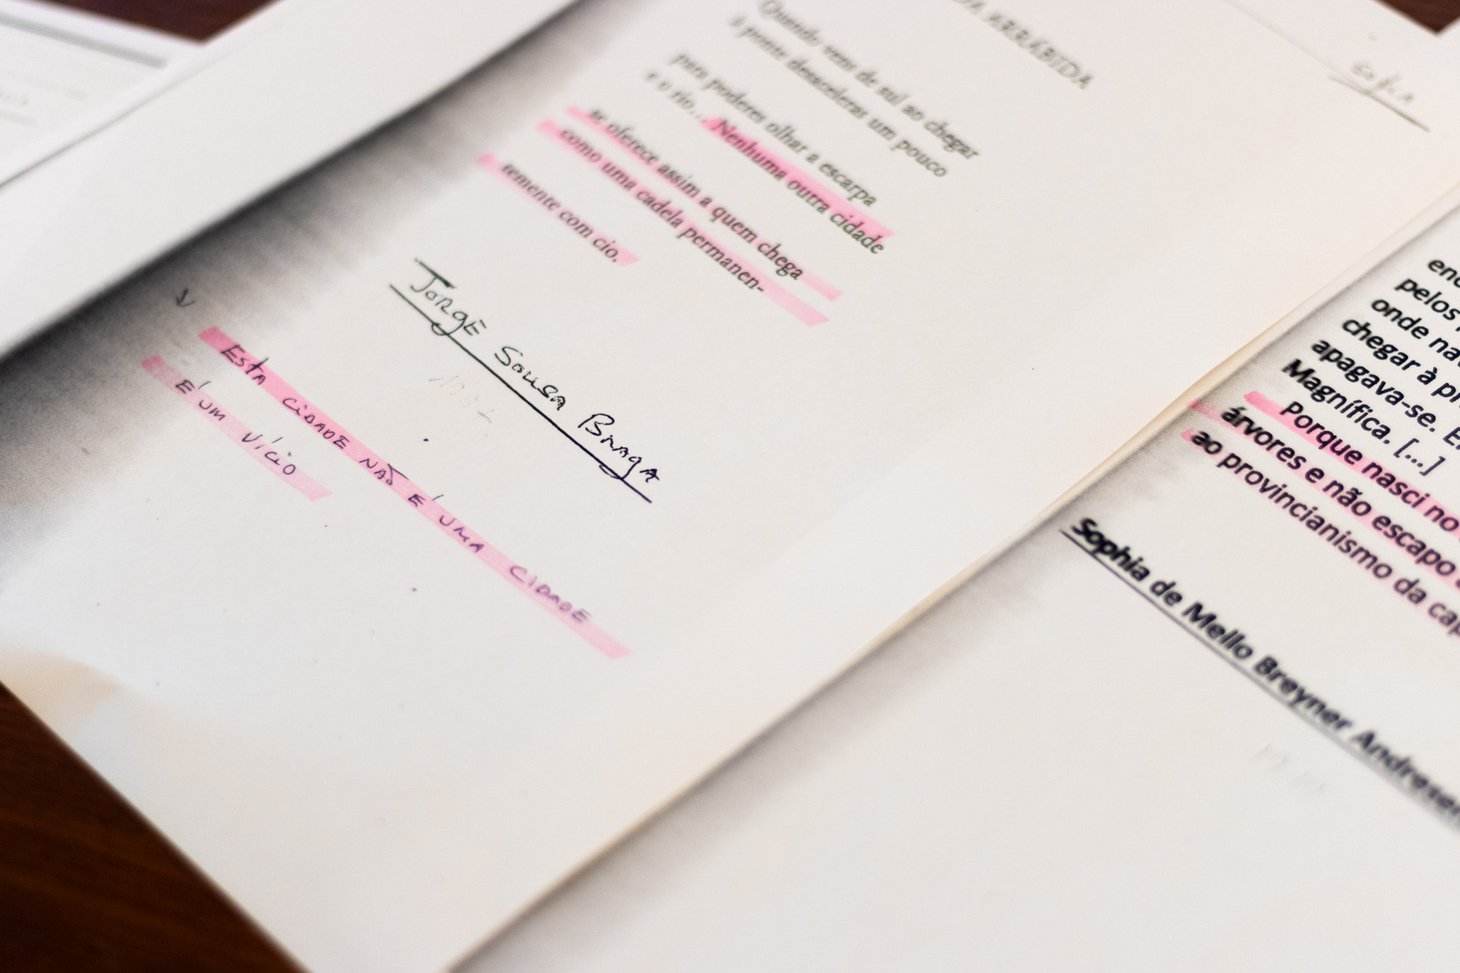 DA ARRÁBIDA
Quando vens de sul ao chegar
à ponte desaceleras um pouco
para poderes olhar a escarpa
e o rio... Nenhuma outra cidade
se oferece assim a quem chega
como uma cadela permanen-
temente com cio.
JORGE SOUSA BRAGA
ESTA CIDADE NÃO É UMA CIDADE
É UM VÍCIO
pelos
onde na
chegar à p
apagava-se. E
Magnífica. [...]
Porque nasci no
árvores e não escapo
ao provincianismo da cap
Sophia de Mello Breyner Andresen